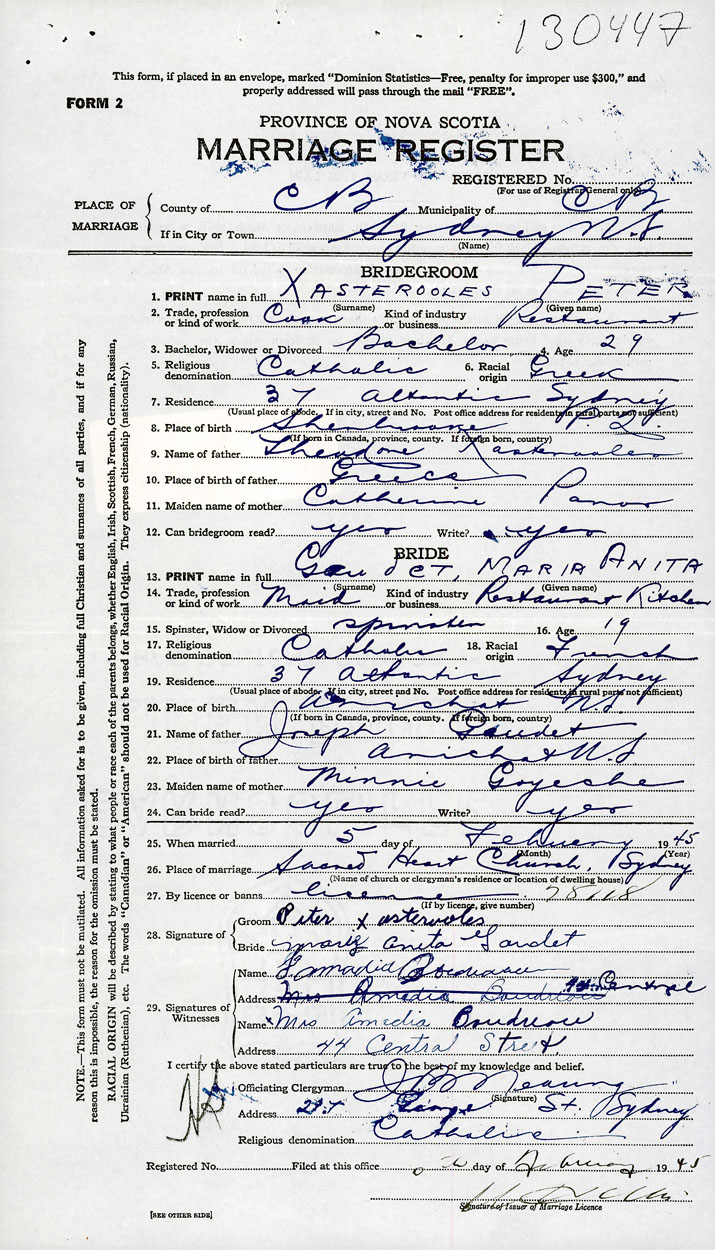 130447
This form, if placed in an envelope, marked "Dominion Statistics—Free, penalty for improper use $300," and
properly addressed will pass through the mail "FREE".
FORM 2
PROVINCE OF NOVA SCOTIA
MARRIAGE REGISTER
REGISTERED No.
(For use of Registrar General only)
PLACE OF MARRIAGE
County of C B Municipality of C B
If in City or Town Sydney N.S.
(Name)
BRIDEGROOM
1. PRINT name in full XASTEROOLES PETER
(Surname) (Given name)
2. Trade, profession or kind of work Cook Kind of industry or business Restaurant
3. Bachelor, Widower or Divorced Bachelor 4. Age 29
5. Religious denomination Catholic 6. Racial origin Greek
7. Residence 37 Altantic Sydney
(Usual place of abode. If in city, street and No. Post office address for residents in rural parts not sufficient)
8. Place of birth Sherbrooke P Q
(If born in Canada, province, county. If foreign born, country)
9. Name of father Theodore Xasterooles
10. Place of birth of father Greece
11. Maiden name of mother Catherine Panos
12. Can bridegroom read? yes Write? yes
BRIDE
13. PRINT name in full GAUDET, MARIA ANITA
(Surname) (Given name)
14. Trade, profession or kind of work Maid Kind of industry or business Restaurant Kitchen
15. Spinster, Widow or Divorced spinster 16. Age 19
17. Religious denomination Catholic 18. Racial origin French
19. Residence 37 Altantic Sydney
(Usual place of abode. If in city, street and No. Post office address for residents in rural parts not sufficient)
20. Place of birth Arichat N.S.
(If born in Canada, province, county. If foreign born, country)
21. Name of father Joseph Gaudet
22. Place of birth of father Arichat N.S
23. Maiden name of mother Minnie Goyeche
24. Can bride read? yes Write? yes
25. When married 5 day of Febuery 1945
(Month) (Year)
26. Place of marriage Sacred Heart Church, Sydney
(Name of church or clergyman's residence or location of dwelling house)
27. By licence or banns license 78118
(If by licence, give number)
28. Signature of
Groom Peter Xasterooles
Bride Marie Anita Gaudet
29. Signatures of Witnesses
Name Amadia Boudreau
Address Mrs Amadia Boudreau Central
Name Mrs Amedia Boudreau
Address 44 Central Street.
I certify the above stated particulars are true to the best of my knowledge and belief.
Officiating Clergyman
(Signature)
Address George St. Sydney
Religious denomination Catholic
Registered No. Filed at this office day of February 1945
Signature of Issuer of Marriage Licence
[SEE OTHER SIDE]
NOTE.—This form must not be mutilated. All information asked for is to be given, including full Christian and surnames of all parties, and if for any
reason this is impossible, the reason for the omission must be stated.
RACIAL ORIGIN will be described by stating to what people or race each of the parents belongs, whether English, Irish, Scottish, French, German, Russian,
Ukrainian (Ruthenian), etc. The words "Canadian" or "American" should not be used for Racial Origin. They express citizenship (nationality).